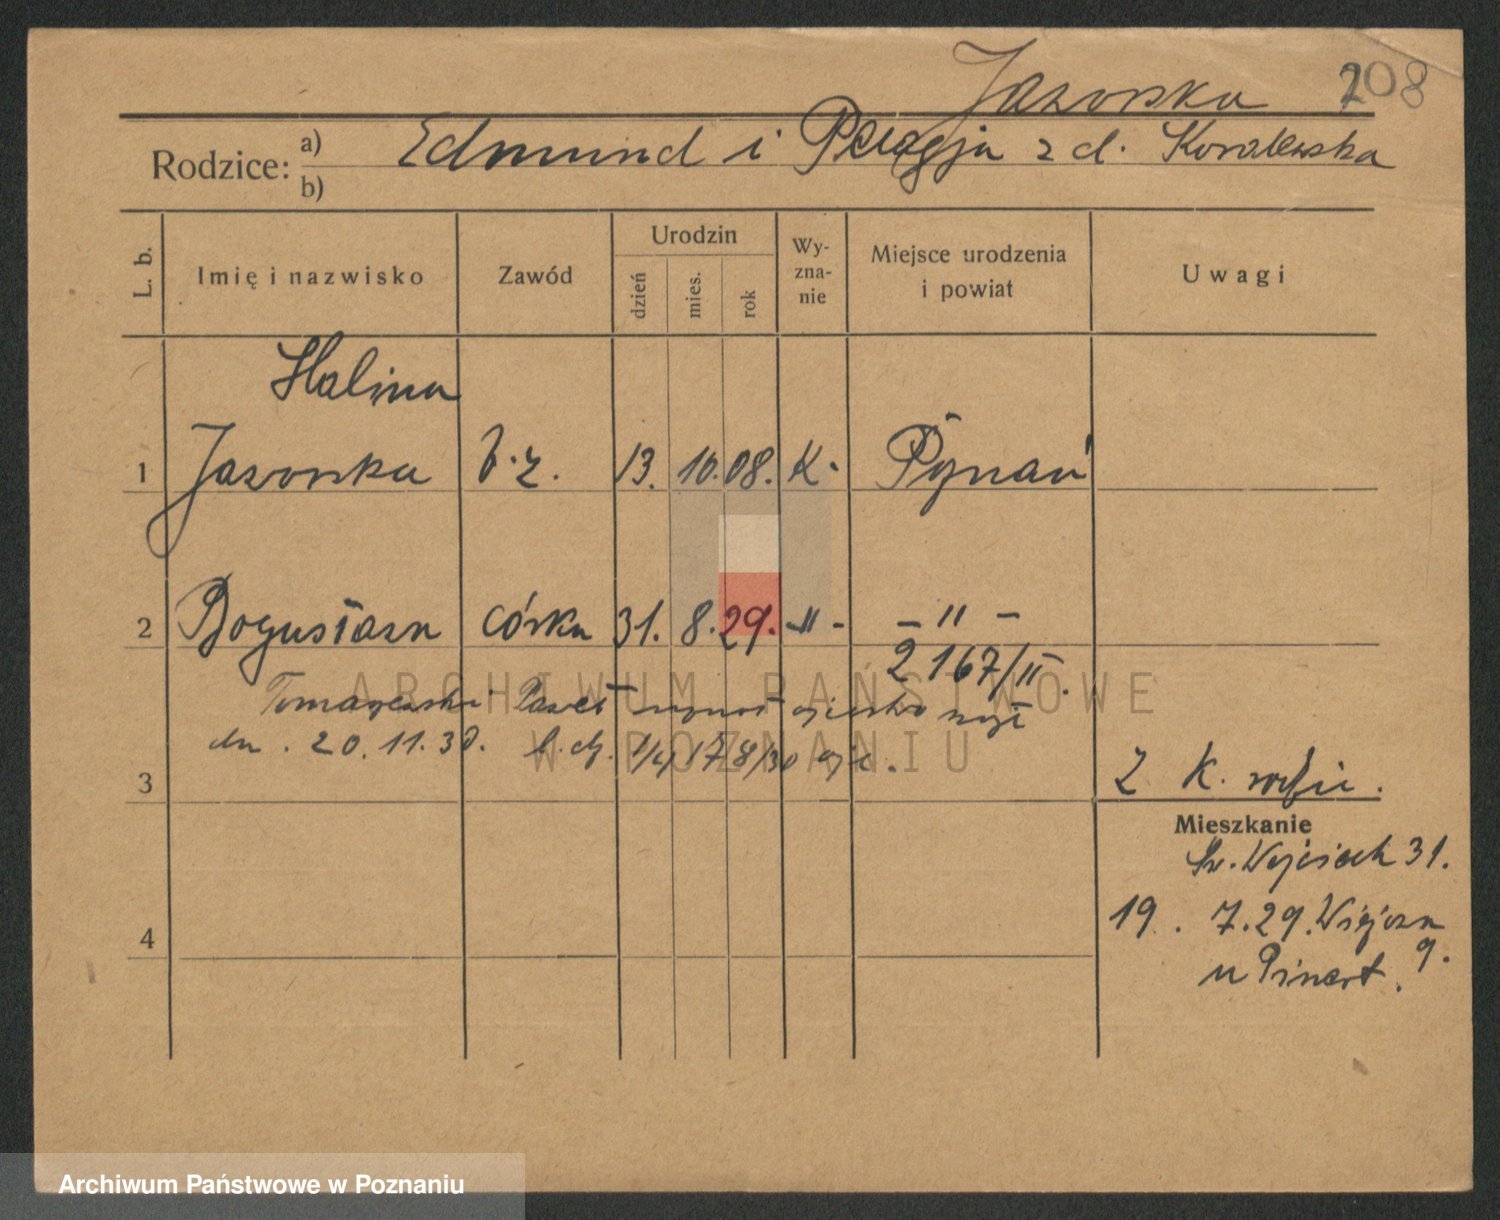 Jaworska 208
Rodzice: a) Edmund i Pelagja z d. Kowalewska
b)
L. b.
Imię i nazwisko
Zawód
Urodzin
dzień
mies.
rok
Wy-
zna-
nie
Miejsce urodzenia
i powiat
Uwagi
Halina
1 Jaworska b. z. 13. 10. 08. K. Poznań
2 Bogusława córka 31. 8. 29. -"- -"-
2167/II.
Tomaszewski Paweł ojcostwo
dn. 20. 11. 30.
3
Z K. rodzic.
Mieszkanie
Św. Wojciech 31.
19. 7. 29.
9.
4
u
ARCHIWUM PAŃSTWOWE
W POZNANIU
Archiwum Państwowe w Poznaniu